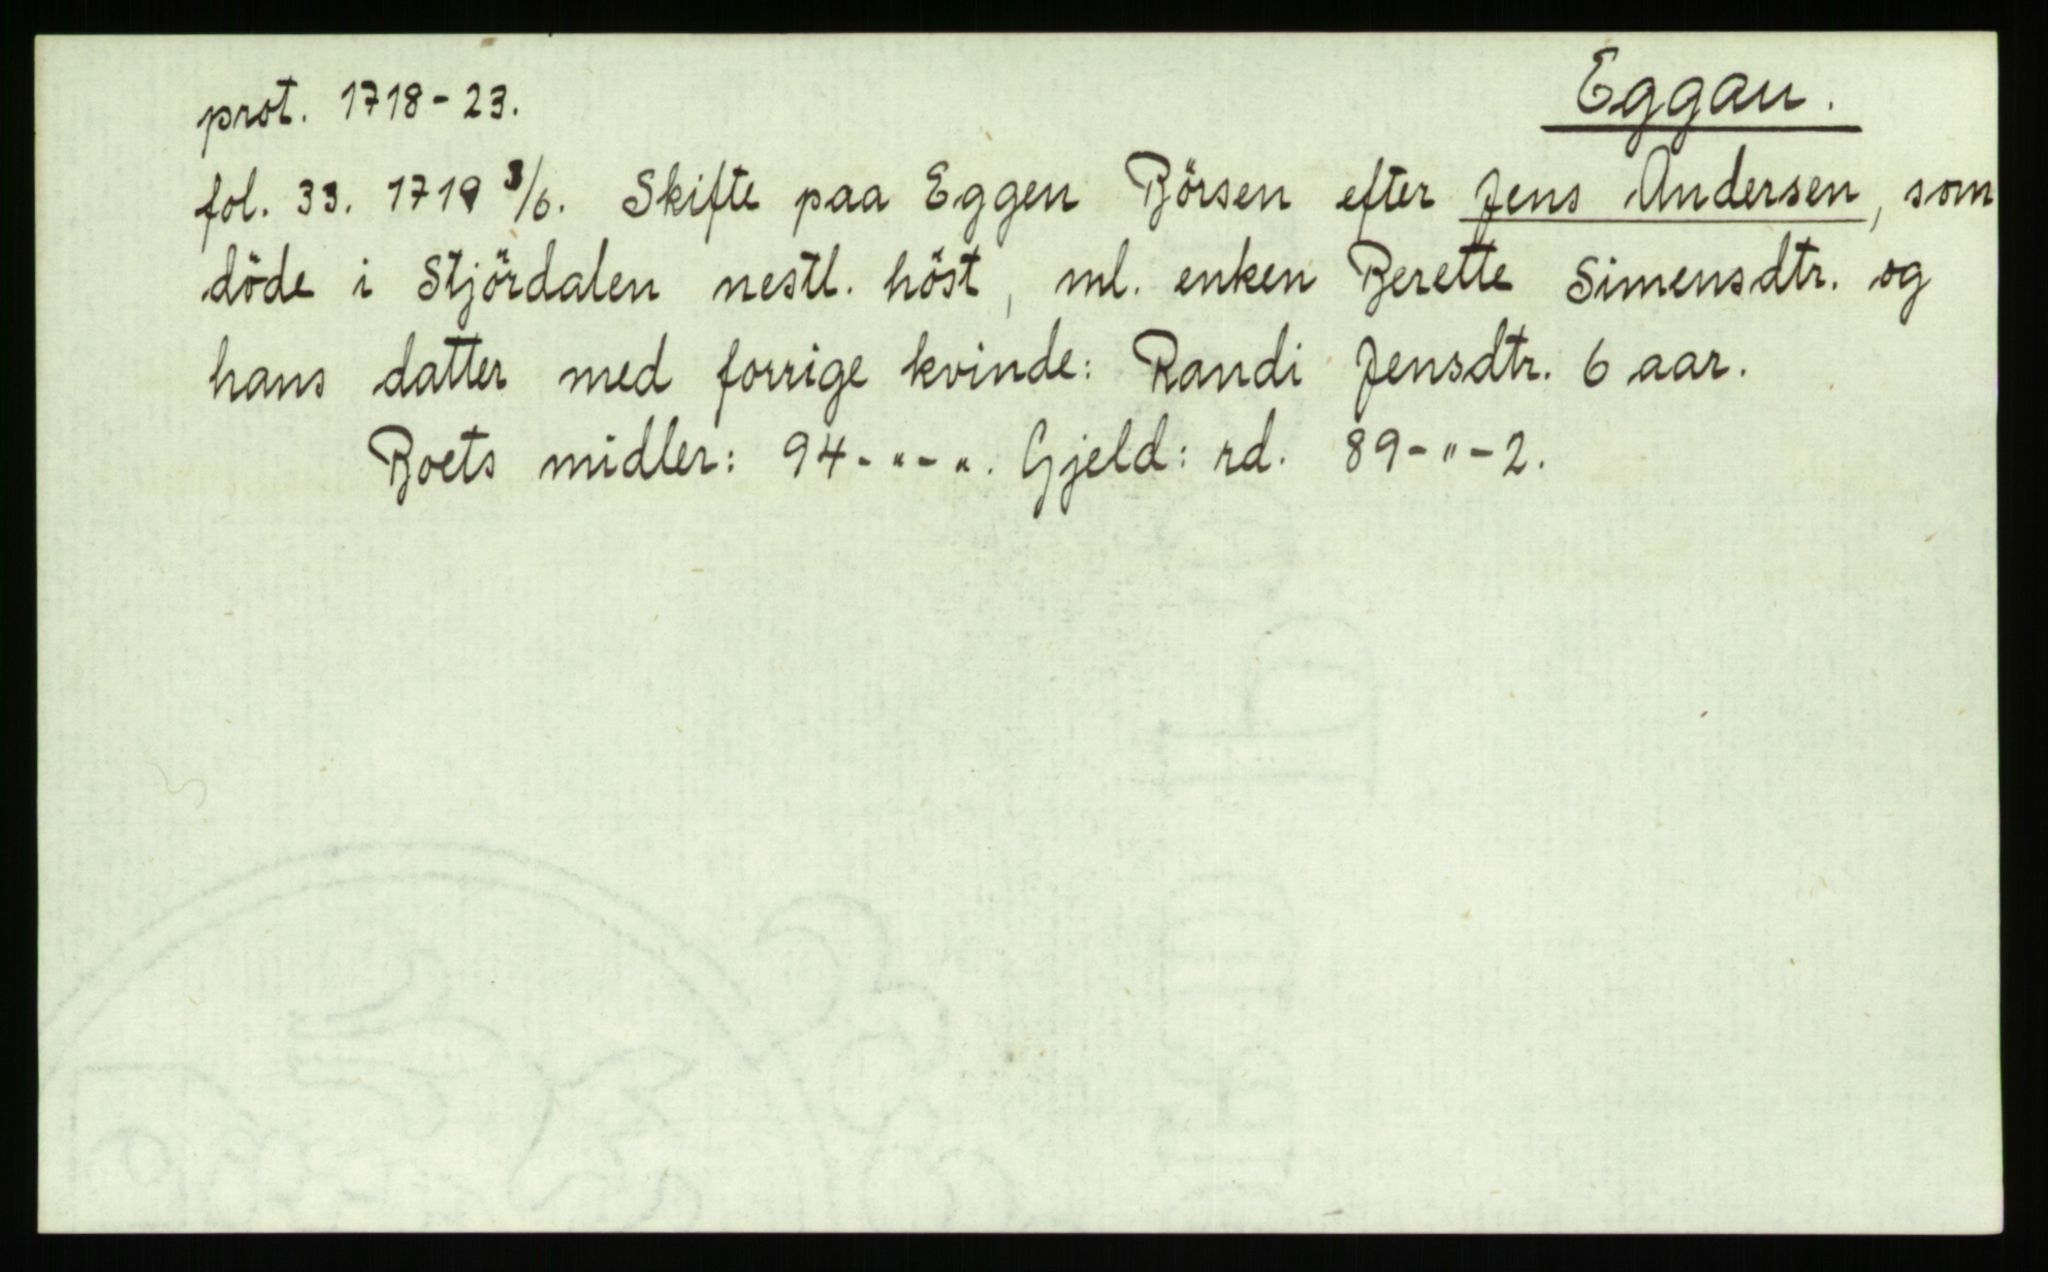 Eggau.
prot. 1718-23.
fol. 33. 1719 3/6. Skifte paa Eggen Börsen efter Jens Andersen, som
döde i Stjördalen nestl. höst, ml. enken Berette Simensdtr. og
hans datter med forrige kvinde: Randi Jensdtr. 6 aar.
Boets midler: 94-"-". Gjeld: rd. 89-"-2.